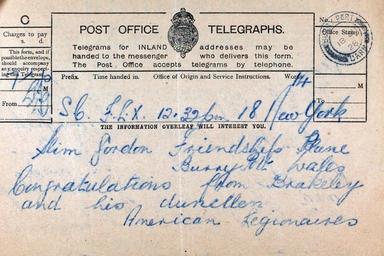 C
Charges to pay
s. d.
POST OFFICE TELEGRAPHS.
No.
Office Stamp
This form, and if possible the envelope, should accompany any enquiry respecting this Telegram.
Telegrams for INLAND addresses may be
handed to the messenger who delivers this form.
The Post Office accepts telegrams by telephone.
Prefix. Time handed in. Office of Origin and Service Instructions. Words.
M
From
S.C. 12.22pm 18 New York 14
THE INFORMATION OVERLEAF WILL INTEREST YOU.
Slim Gordon Friendships Plane
Burry Wales
Congratulations from Brakeley
and his dunellen
American Legionaires